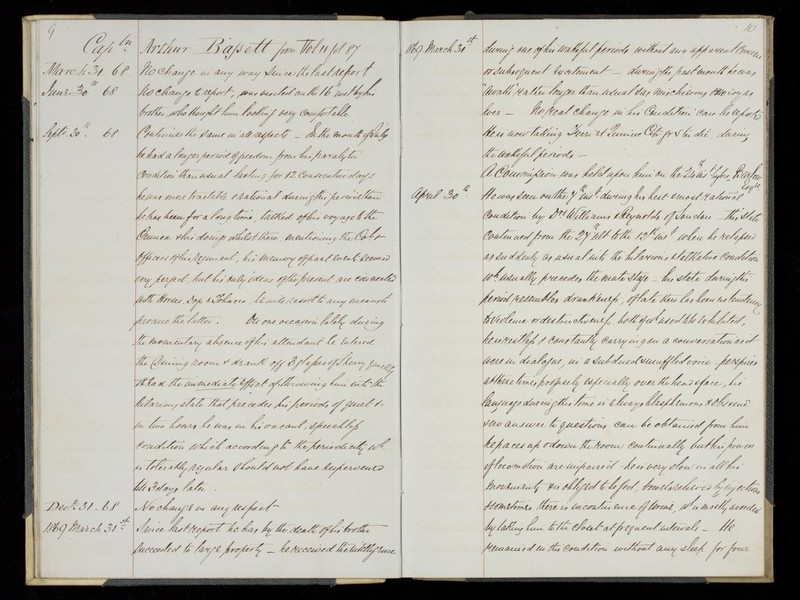 9
Captn Arthur Bassett from Vol 11 fol 87
March 31. 68 No change in any way since the last report
June 30th 68 No change to report, was visited on the 16 inst by his
brother, who thought him looking very comfortable
Septr 30th. 68 Continues the same in all respects - In the month of July
he had a longer period of freedom from his paralytic
condition than usual lasting for 12 consecutive days
he was more tractable & rational during this period than
he has been for a long time, talked of his voyage to the
Crimea & his doings whilst there, mentioning the Col. &
Officers of his Regiment, his memory of past events seemed
very perfect, but his only ideas of the present are connected
with Horses, Dogs & Tobacco, he will resort to any means to
procure the latter. On one occasion lately during
the momentary absence of his attendant he entered
the Dining room & drank off 3 glasses of Sherry quickly
it had the immediate effect of throwing him into the
hilarious state that precedes his periods of quiet &
in two hours he was in his vacant, speechless
condition which according to the periodicity wh
is tolerably regular should not have supervened
till 3 days later.
Decr 31. 68 No change in any respect
1869 March 31st Since last report he has by the death of his brother
succeeded to large property - he received the intelligence
10
1869 March 31st during one of his wakeful periods without any apparent emotion
or subsequent excitement - during the past month he was
"awake" rather longer than usual & as mischievous & noisy as
ever - No real change in his condition can be reported
He is now taking during
the wakeful periods -
A Commission was held upon him on the 24th inst before Barlow Esqre
April 30th He was seen on the 7th inst. during his best & most rational
condition by Drs Williams & Reynolds of London - this state
continued from the 27th ult to the 13th inst when he relapsed
as suddenly as usual into the hilarious & talkative condition
wh usually precedes the mute stage - his state during this
period resembles drunkenness, of late there has been no tendency
to violence or destructiveness, both of which used to be exhibited,
he is restless & constantly carrying on a conversation as it
were in dialogue, in a subdued & muffled voice perspires
at these times profusely especially over the head & face, his
language during this time is always blasphemous & obscene
& no answer to questions can be obtained from him
he paces up & down the room continually but his powers
of locomotion are impaired - he is very slow in all his
movements & is obliged to be fed, bowels relieved by injections
& sometimes there is incontinence of urine, wh is mostly avoided
by taking him to the closet at frequent intervals - He
remained in this condition without any sleep for four